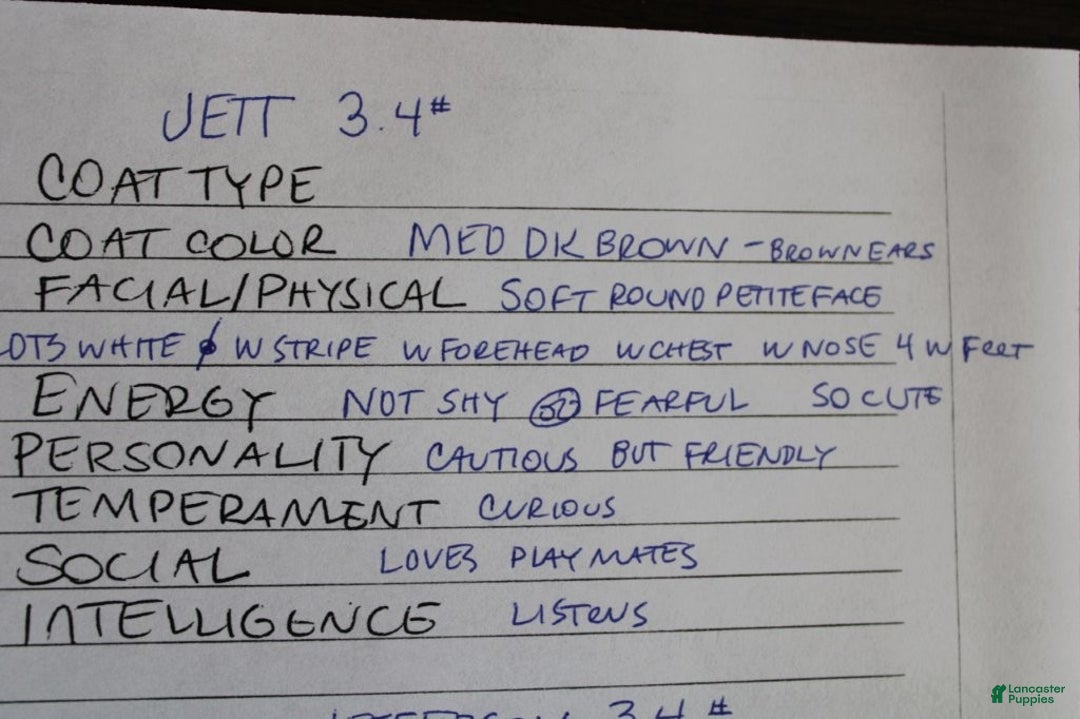 JETT 3.4#
COAT TYPE
COAT COLOR MED DK BROWN - BROWN EARS
FACIAL/PHYSICAL SOFT ROUND PETITE FACE
LOTS WHITE W STRIPE W FOREHEAD W CHEST W NOSE 4 W FEET
ENERGY NOT SHY FEARFUL SO CUTE
PERSONALITY CAUTIOUS BUT FRIENDLY
TEMPERAMENT CURIOUS
SOCIAL LOVES PLAYMATES
INTELLIGENCE LISTENS
3.4#
Lancaster
Puppies